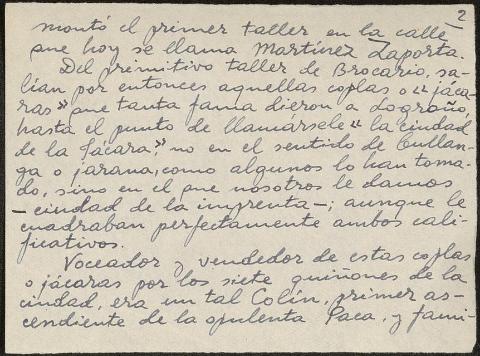 2
montó el primer taller en la calle
que hoy se llama Martínez Zaporta.
Del primitivo taller de Brocario, sa-
lían por entonces aquellas coplas o "jáca-
ras" que tanta fama dieron a Logroño,
hasta el punto de llamársele "la ciudad
de la Jácara", no en el sentido de bullan-
ga o jarana, como algunos lo han toma-
do, sino en el que nosotros le damos
—ciudad de la imprenta—; aunque le
cuadraban perfectamente ambos cali-
ficativos.
Voceador y vendedor de estas coplas
o jácaras por los siete quiñones de la
ciudad, era un tal Colín, primer as-
cendiente de la opulenta Paca, y fami-